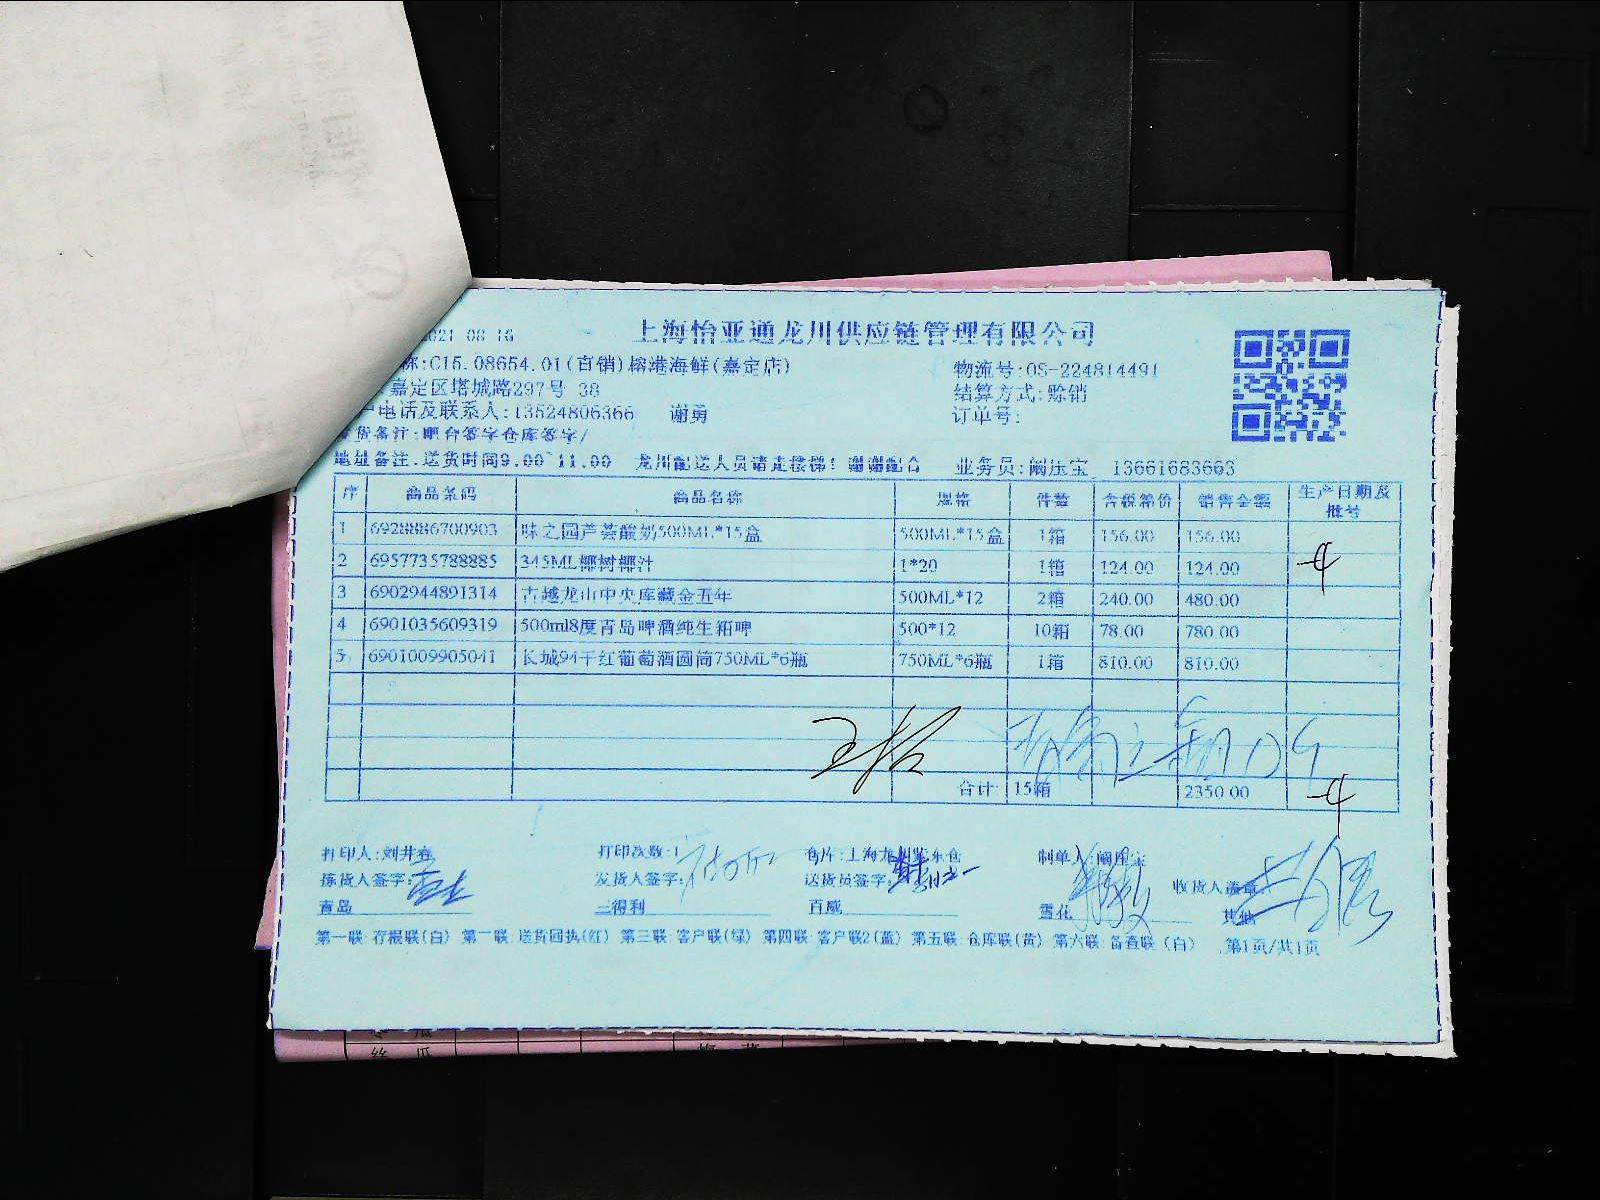 2021 08 16
上海怡亚通龙川供应链管理有限公司
称:C15.08654.01(百销)榕港海鲜(嘉定店)
物流号:OS-224814491
嘉定区塔城路297号 38
结算方式:赊销
户电话及联系人:13524806366 谢勇
订单号:
货备注:吧台签字仓库签字/
地址备注.送货时间9.00~11.00 龙川配送人员请走楼梯!谢谢配合 业务员:阚压宝 13661683663
序 商品条码 商品名称 规格 件数 含税箱价 销售金额 生产日期及批号
1 6928886700903 味之园芦荟酸奶500ML*15盒 500ML*15盒 1箱 156.00 156.00
2 6957735788885 345ML椰树椰汁 1*20 1箱 124.00 124.00
3 6902944891314 古越龙山中央库藏金五年 500ML*12 2箱 240.00 480.00
4 6901035609319 500ml8度青岛啤酒纯生箱啤 500*12 10箱 78.00 780.00
5 6901009905041 长城94干红葡萄酒圆筒750ML*6瓶 750ML*6瓶 1箱 810.00 810.00
合计: 15箱 2350.00
打印人:刘井春 打印次数:1 仓库:上海龙川 东仓 制单人:阚压宝
拣货人签字: 发货人签字: 送货员签字: 收货人盖章
青岛 三得利 百威 雪花 其他
第一联:存根联(白) 第二联:送货回执(红) 第三联:客户联(绿) 第四联:客户联2(蓝) 第五联:仓库联(黄) 第六联:备查联(白) 第1页/共1页
丝 瓜